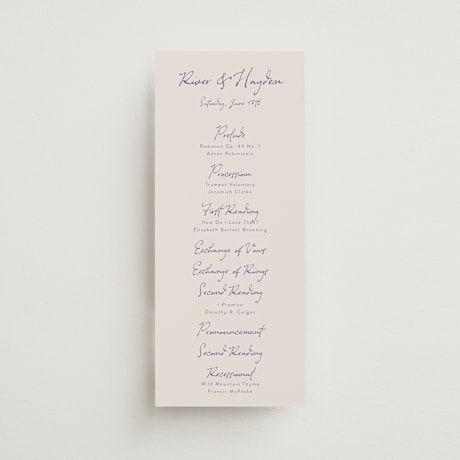 River & Hayden
Saturday, June 15th
Prelude
Romance Op. 44 No. 1
Anton Rubinstein
Procession
Trumpet Voluntary
Jeremiah Clarke
First Reading
How Do I Love Thee?
Elizabeth Barrett Browning
Exchange of Vows
Exchange of Rings
Second Reading
I Promise
Dorothy R. Colgan
Pronouncement
Second Reading
Recessional
Wild Mountain Thyme
Francis McPeake